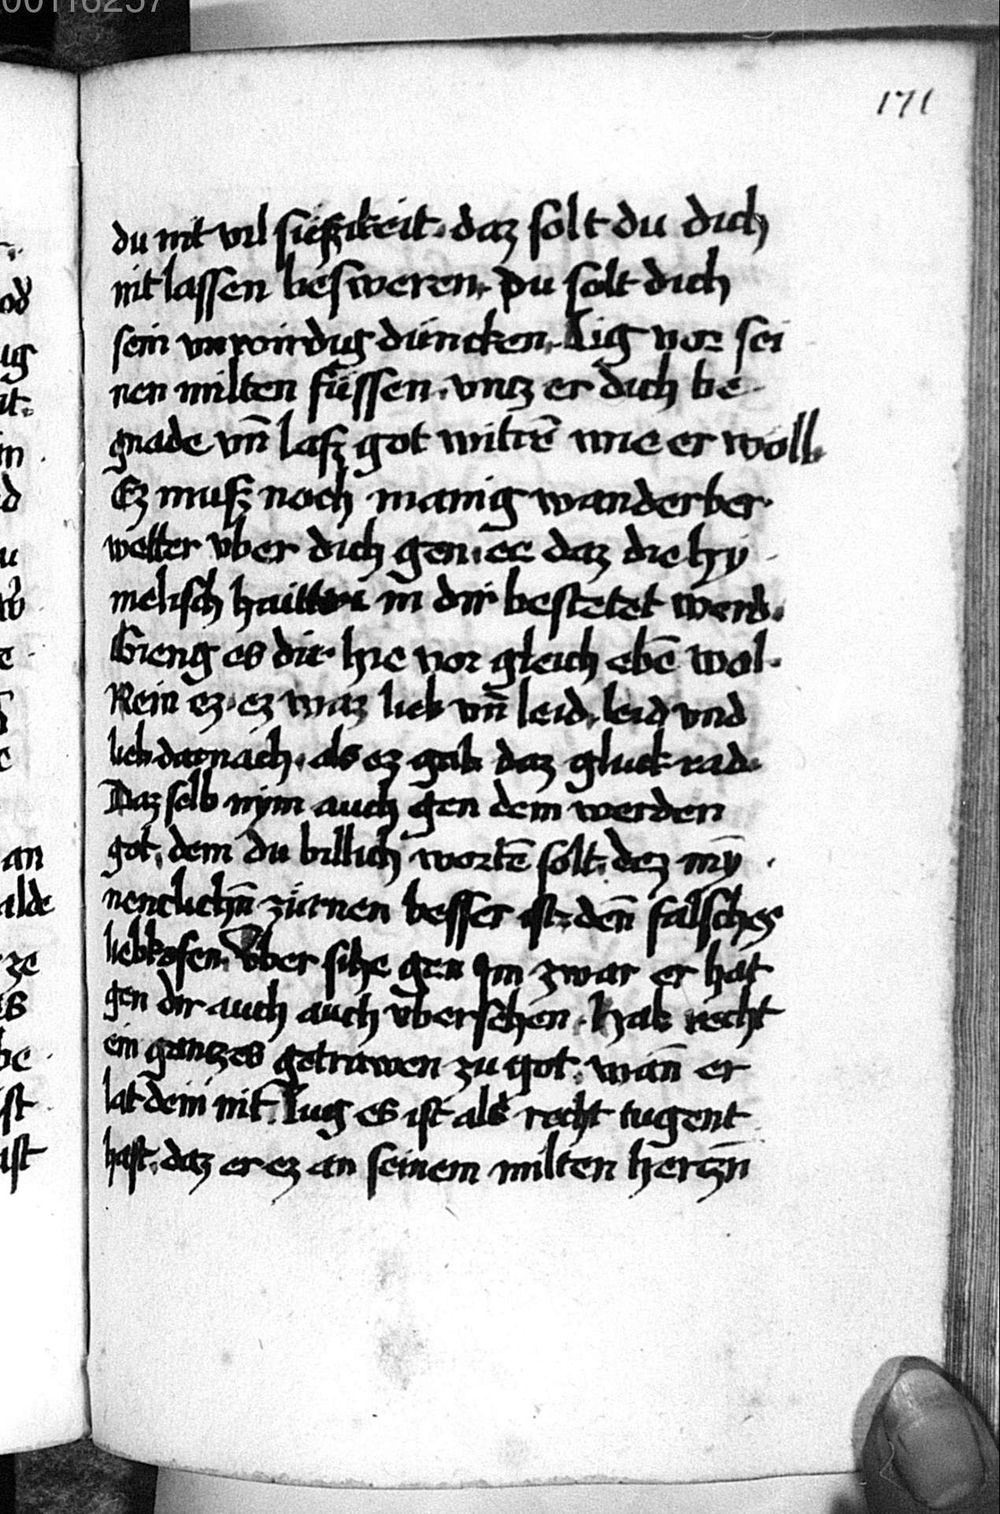 00116257
171
du nit vil süssikeit. daz solt du dich
nit lassen besweren. Du solt dich
sein vnwirdig duncken. Lig vor sei
nen milten füssen. vntz er dich be
gnade vn̄ lasz got mitē wie er woll.
Ez musz noch manig wanderber
wetter vber dich gen. ee daz die hy
melisch haitteri in dir bestetet werd.
Gieng es dir hie vor gleich ebē wol.
Nein ez. ez waz lieb vn̄ leid. leid vnd
lieb darnach. als ez gab daz gluck rad
Daz selb nym auch gen dem werden
got. dem du billich wortē solt. dez my̅
nenclichn̄ zürnen besser ist. den̄ falsches
liebkosen. Vber sihe gen Im zwar er hat
gen dir auch auch vbersehen. Hab recht
ein gantzes getrawen zu got. wan̄ er
lat dein nit. Lug es ist als recht tugent
hast. daz er ez an seinem milten hertzn̄